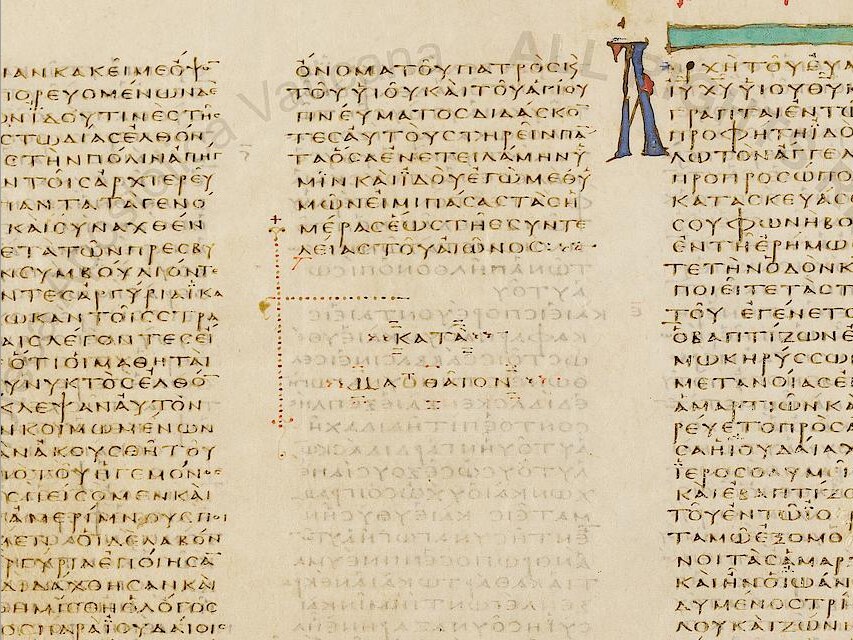 ΙΑΝΚΑΚΕΙΜΕΟΨ
ΠΟΡΕΥΟΜΕΝΩΝΔΕ
ΩΝΙΔΟΥΤΙΝΕϹΤΗϹ
ϹΤΩΔΙΑϹΕΛΘΟΝ
ϹΤΗΝΠΟΛΙΝΑΠΗΓ
ΝΤΟΙϹΑΡΧΙΕΡΕΥ
ΠΑΝΤΑΤΑΓΕΝΟ
ΚΑΙϹΥΝΑΧΘΕΝ
ΕΤΑΤΩΝΠΡΕϹΒΥ
ΝϹΥΜΒΟΥΛΙΟΝΤΕ
ΝΤΕϹΑΡΓΥΡΙΑΙΚΑ
ΩΚΑΝΤΟΙϹϹΤΡΑ
ΑΙϹΛΕΓΟΝΤΕϹΕΙ
ΟΤΙΟΙΜΑΘΗΤΑΙ
ΥΝΥΚΤΟϹΕΛΘΟ
ΚΛΕΨΑΝΑΥΤΟΝ
ΝΚΟΙΜΩΜΕΝΩΝ
ΑΝΑΚΟΥϹΘΗΤΟΥ
ΠΟΤΟΥΗΓΕΜΟΝΟϹ
ϹΠΕΙϹΟΜΕΝΚΑΙ
ΑΜΕΡΙΜΝΟΥϹΠΟΙ
ΜΕΝΟΙΔΕΛΑΒΟΝ
ΡΓΥΡΙΑΕΠΟΙΗϹΑ
ΔΙΔΑΧΘΗϹΑΝΚΑΙ
ΦΗΜΙϹΘΗΟΛΟΓΟϹ
ΟϹΠΑΡΑΙΟΥΔΑΙΟΙϹ
ΟΝΟΜΑΤΟΥΠΑΤΡΟϹΚ
ΤΟΥΥΙΟΥΚΑΙΤΟΥΑΓΙΟΥ
ΠΝΕΥΜΑΤΟϹΔΙΔΑϹΚΟ
ΤΕϹΑΥΤΟΥϹΤΗΡΕΙΝΠΑ
ΤΑΟϹΑΕΝΕΤΕΙΛΑΜΗΝΥ
ΜΙΝΚΑΙΙΔΟΥΕΓΩΜΕΘΥ
ΜΩΝΕΙΜΙΠΑϹΑϹΤΑϹΗ
ΜΕΡΑϹΕΩϹΤΗϹϹΥΝΤΕ
ΛΕΙΑϹΤΟΥΑΙΩΝΟϹ:
ΚΑΤΑ
ΜΑΘΘΑΙΟΝ
ΑΡΧΗΤΟΥΕΥΑ
ΙΥΧΥΥΙΟΥΘΥΚ
ΓΡΑΠΤΑΙΕΝΤΩ
ΠΡΟΦΗΤΗΙΔΟ
ΛΩΤΟΝΑΓΓΕΛ
ΠΡΟΠΡΟϹΩΠΟ
ΚΑΤΑϹΚΕΥΑϹΕ
ϹΟΥΦΩΝΗΒΟ
ΕΝΤΗΕΡΗΜΩ
ΤΕΤΗΝΟΔΟΝΚ
ΠΟΙΕΙΤΕΤΑϹΤ
ΤΟΥ ΕΓΕΝΕΤΟ
ΟΒΑΠΤΙΖΩΝΕ
ΜΩΚΗΡΥϹϹΩ
ΜΕΤΑΝΟΙΑϹΕΙ
ΑΜΑΡΤΙΩΝΚΑ
ΡΕΥΕΤΟΠΡΟϹΑ
ϹΑΗΙΟΥΔΑΙΑΧ
ΙΕΡΟϹΟΛΥΜΕΙ
ΚΑΙΕΒΑΠΤΙΖΟ
ΤΟΥΕΝΤΩΙΟ
ΤΑΜΩΕΞΟΜΟ
ΝΟΙΤΑϹΑΜΑΡ
ΚΑΙΗΝΟΙΩΑΝ
ΔΥΜΕΝΟϹΤΡΙ
ΛΟΥΚΑΙΖΩΝΗ